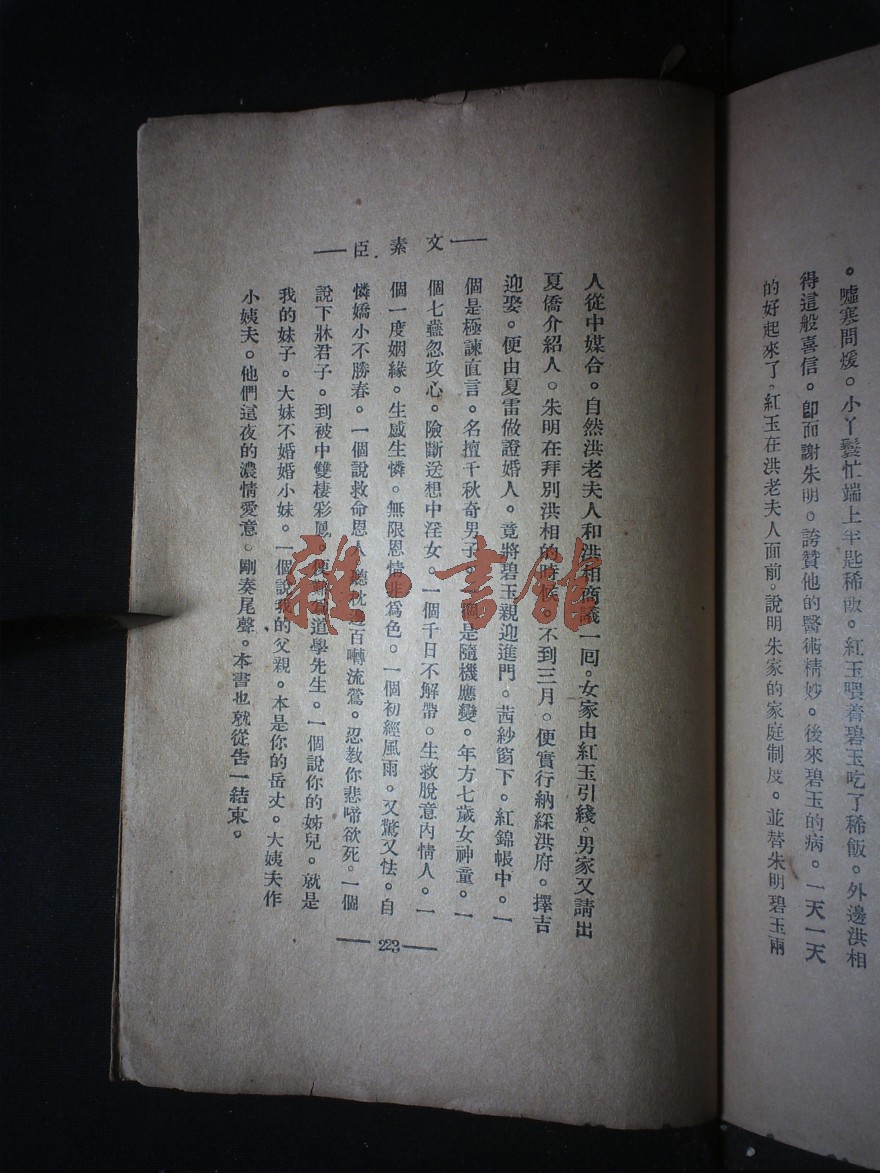 。噓寒問煖。小丫鬟忙端上半匙稀飯。紅玉喂着碧玉吃了稀飯。外邊洪相
得這般喜信。卽面謝朱明。誇贊他的醫術精妙。後來碧玉的病。一天一天
的好起來了。紅玉在洪老夫人面前。說明朱家的家庭制度。並替朱明碧玉兩
文素臣
人從中媒合。自然洪老夫人和洪相商議一囘。女家由紅玉引綫。男家又請出
夏僑介紹人。朱明在拜別洪相的時候。不到三月。便實行納綵洪府。擇吉
迎娶。便由夏雷做證婚人。竟將碧玉親迎進門。茜紗窗下。紅錦帳中。一
個是極諫直言。名擅千秋奇男子。一個是隨機應變。年方七歲女神童。一
個七蠱忽攻心。險斷送想中淫女。一個千日不解帶。生救脫意內情人。一
個一度姻緣。生感生憐。無限恩情非爲色。一個初經風雨。又驚又怯。自
憐嬌小不勝春。一個說救命恩人。聽枕邊百囀流鶯。忍教你悲啼欲死。一個
說下牀君子。到被中雙棲彩鳳。便道學先生。一個說你的姊兒。就是
我的妹子。大妹不婚婚小妹。一個說我的父親。本是你的岳丈。大姨夫作
小姨夫。他們這夜的濃情愛意。剛奏尾聲。本書也就從吿一結束。
223
雜·書館